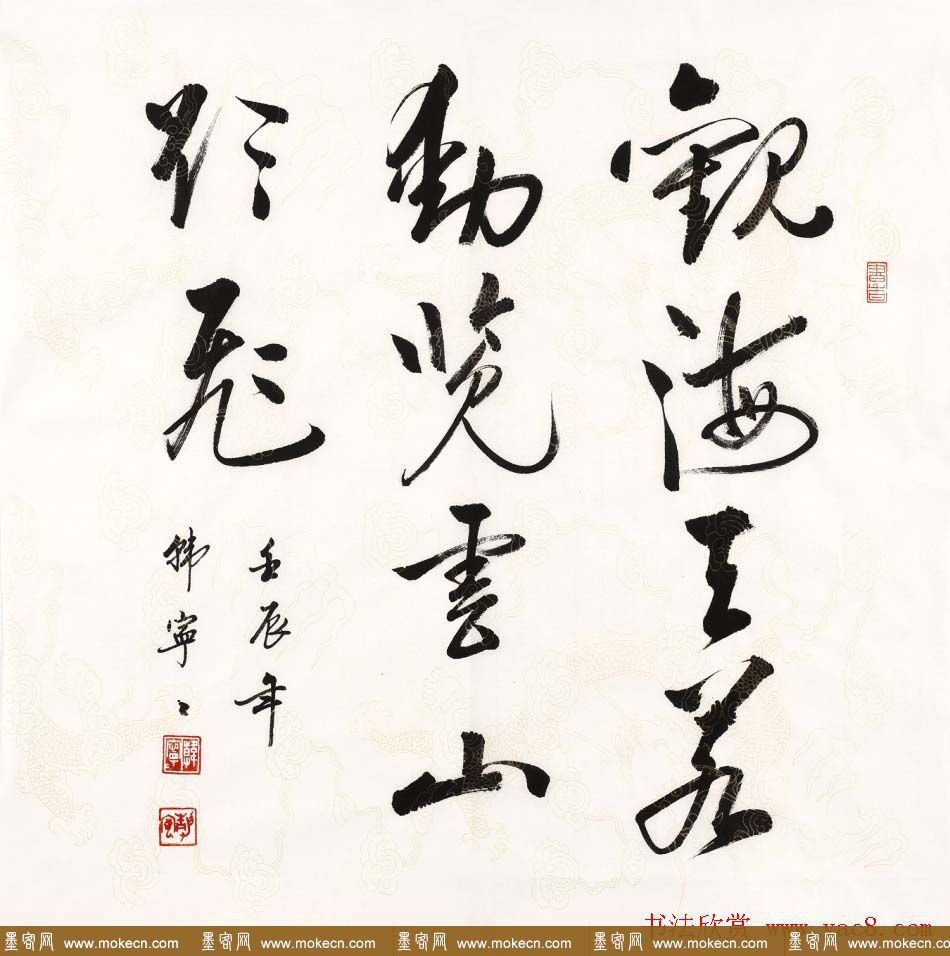 觀海天若
動览雲山
欲飛
壬辰年
韩寧々
韓寧
书法欣赏 www.yac8.com
墨客网 www.mokecn.com 墨客网 www.mokecn.com 墨客网 www.mokecn.com 墨客网 www.mokecn.com 墨客网 www.mokecn.com